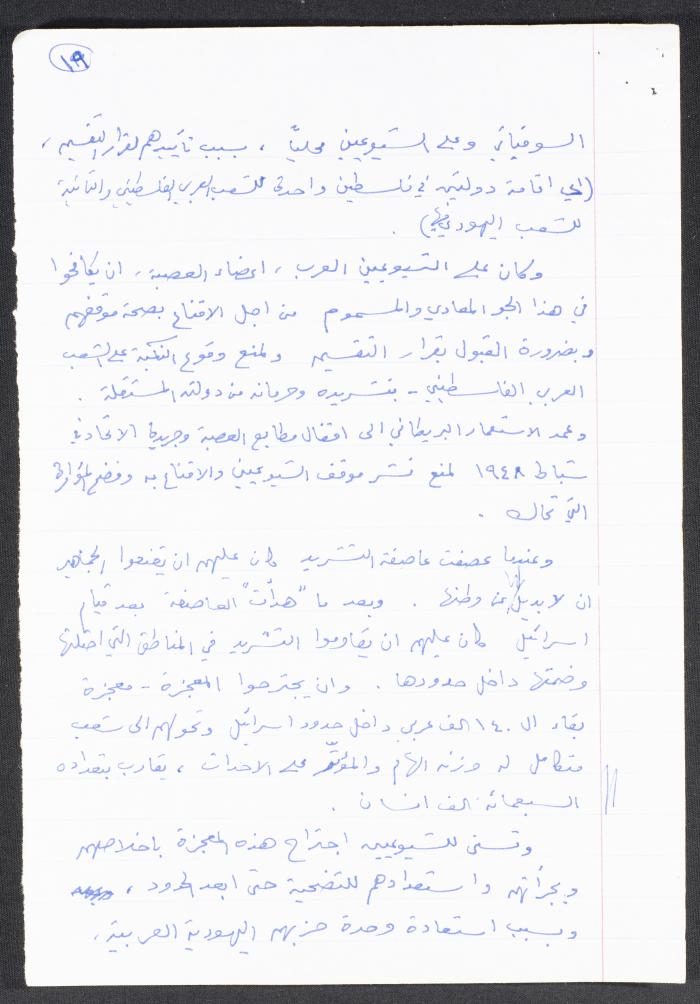 ١٩
السوفياتي وعلى الشيوعيين محليًا ، بسبب تأييدهم لقرار التقسيم ،
(اي اقامة دولتين في فلسطين واحدة للشعب العربي الفلسطيني والثانية
للشعب اليهودي فيها) .
وكان على الشيوعيين العرب ، اعضاء العصبة ، ان يكافحوا
في هذا الجو المعادي والمسموم من اجل الاقناع بصحة موقفهم
وبضرورة القبول بقرار التقسيم ولمنع وقوع النكبة على الشعب
العربي الفلسطيني - بتشريده وحرمانه من دولته المستقلة .
وعمد الاستعمار البريطاني الى اقفال مطابع العصبة وجريدة الاتحاد في
شباط ١٩٤٨ لمنع نشر موقف الشيوعيين والاقناع به وفضح المؤامرة
التي تحاك .
وعندما عصفت عاصفة التشريد كان عليهم ان يقنعوا الجماهير
ان لا بديل لها عن وطنها . وبعد ما "هدأت" العاصفة بعد قيام
اسرائيل كان عليهم ان يقاوموا التشريد في المناطق التي احتلتها
وضمتها داخل حدودها . وان يجترحوا المعجزة - معجزة
بقاء ال ١٤٠ الف عربي داخل حدود اسرائيل وتحولهم الى شعب
متكامل له وزنه الهام والمؤثّر على الاحداث ، يقارب بتعداده
السبعمائة الف انسان .
وتسنى للشيوعيين اجتراح هذه المعجزة باخلاصهم
وبجرأتهم واستعدادهم للتضحية حتى ابعد الحدود ،
وبسبب استعادة وحدة حزبهم اليهودية العربية ،